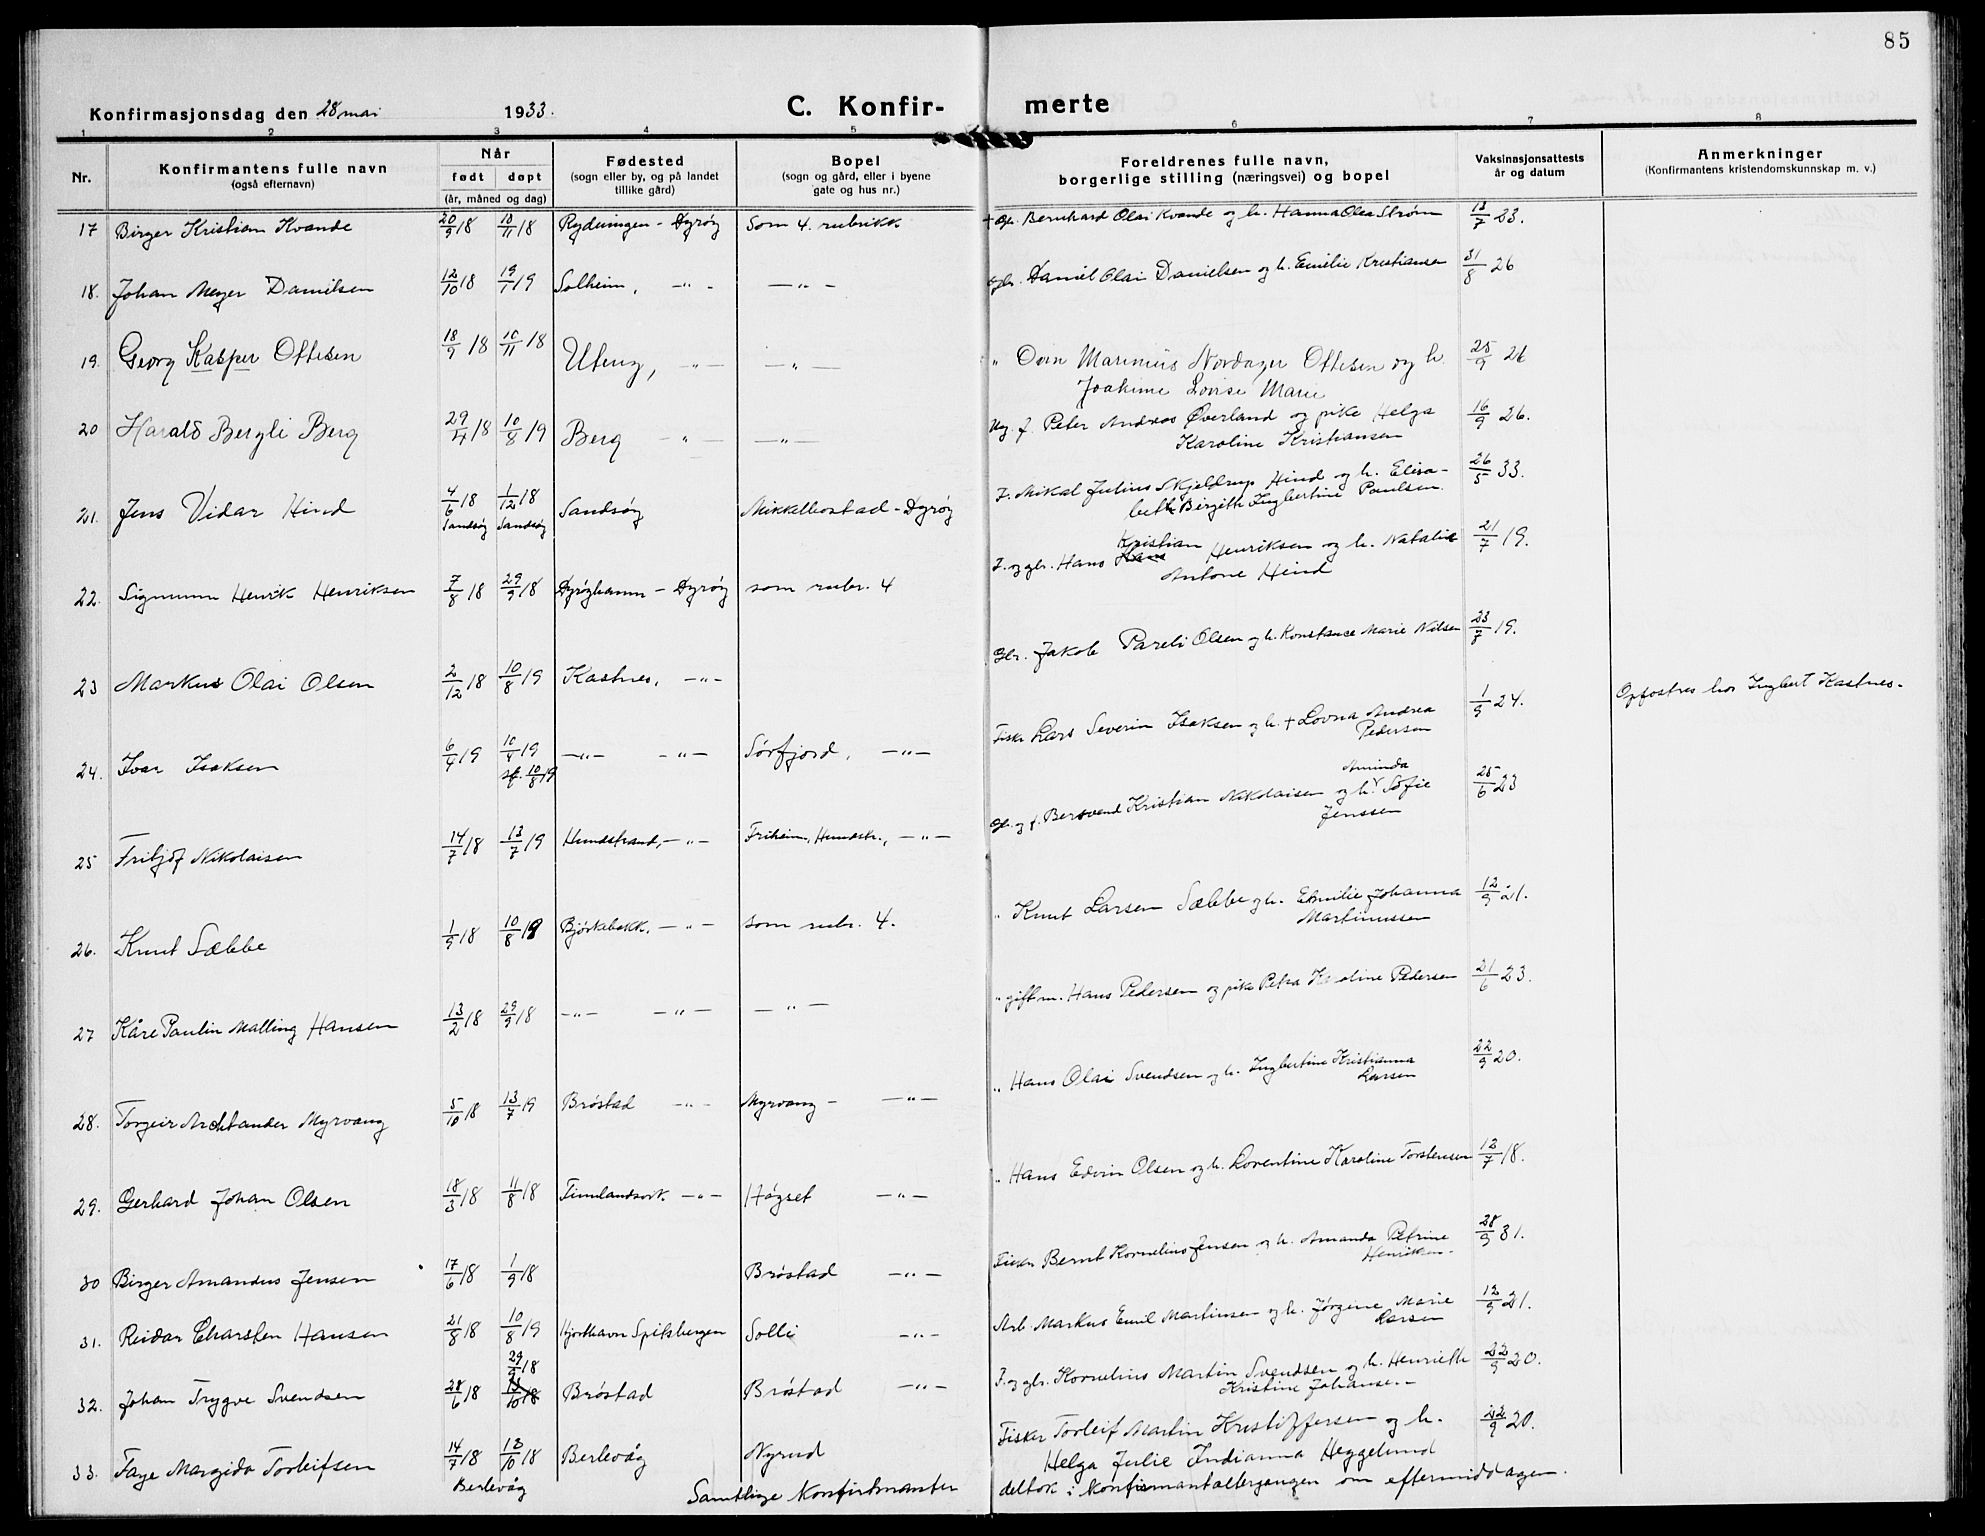 85
Konfirmasjonsdag den 28 mai 1933.
C. Konfir- merte
1 2 3 4 5 6 7 8
Nr.
Konfirmantens fulle navn
(også efternavn)
Når
født døpt
(år, måned og dag)
Fødested
(sogn eller by, og på landet
tillike gård)
Bopel
(sogn og gård, eller i byene
gate og hus nr.)
Foreldrenes fulle navn,
borgerlige stilling (næringsvei) og bopel
Vaksinasjonsattests
år og datum
Anmerkninger
(Konfirmantens kristendomskunnskap m. v.)
17 Birger Kristian Kvande 20/9 18 10/11 18 Rydningen - Dyrøy Som 4. rubrikk + Gbr. Bernhard Olai Kvande og h. Hanna Olea Strøm 13/7 23.
18. Johan Meyer Danielsen 12/10 18 19/1 19 Solheim, -"- -"- Gbr. Daniel Olai Danielsen og h. Emilie Kristiansen 31/8 26
19. Georg Kasper Oftesen 18/9 18 10/11 18 -"- -"- " Marinius Nordager Oftesen og h. 25/9 26
Joakime Lovise Marie
20 Harald Bergli Berg 29/4 18 10/8 19 Berg -"- -"- Ug. f. Peter Andreas Øverland og pike Helga 16/9 26.
Karoline Kristiansen
21. Jens Vidar Hind 4/6 18 1/12 18 Sandsøy Mikkelbostad - Dyrøy F. Mikal Julius Skjeldrup Hind og h. Elisa- 26/5 33.
Sandsøy Sandsøy
beth Birgith Ingbertine Paulsen.
22. Sigmunn Henrik Henriksen 7/8 18 29/9 18 Dyrøyhamn - Dyrøy som rubr. 4 F. og gbr. Hans Kristian Henriksen og h. Natalie 21/7 19.
Antone Hind
23 Markus Olai Olsen 2/12 18 10/8 19 Kastnes, -"- Gbr. Jakob Pareli Olsen og h. Konstance Marie Nilsen 23/8 19.
24. Ivar Isaksen 6/4 19 10/4 19 -"- -"- Sørfjord, -"- Fisker Lars Severin Isaksen og h. + Lovna Andrea 1/9 24. Opfostres hos Ingbert Kastnes.
st. 10/8 19
Pedersen
25 Fritjof Nikolaisen 14/7 18 13/7 19 Hundstrand, -"- Friheim, Hundstr., -"- Gbr. og f. Bersvend Kristian Nikolaisen og h. Aminda Sofie 25/6 23
Jenssen
26. Knut Sæbbe 1/9 18 10/8 19 Bjørkebakk, -"- som rubr. 4. " Knut Larsen Sæbbe og h. Emilie Johanna 12/9 21.
Martinussen
27 Kåre Paulin Malling Hansen 13/2 18 29/9 18 -"- -"- -"- " gift m. Hans Pedersen og pike Petra Pedersen 21/6 23.
28. Torgeir Archtander Myrvang 5/10 18 13/7 19 Brøstad -"- Myrvang - -"- " Hans Olai Svendsen og h. Ingbertine Kristianna 22/9 20.
Larsen
29. Gerhard Johan Olsen 18/3 18 11/8 18 Finnlandsvk. -"- Høgset -"- " Hans Edvin Olsen og h. Lorentine Karoline Torstensen 12/7 18.
30 Birger Amandus Jensen 17/6 18 1/9 18 Brøstad -"- Fisker Bernt Kornelius Jensen og h. Amanda Petrine 28/9 31.
Henriksen.
31. Reidar Charsten Hansen 21/8 18 10/8 19 Hjorthavn Spitsbergen Solli -"- Arb. Markus Emil Martinsen og h. Jørgine Marie 12/9 21.
Larsen
32. Johan Trygve Svendsen 28/6 18 29/9 18 Brøstad Brøstad -"- F. og gbr. Kornelius Martin Svendsen og h. Henriette 22/9 20.
Kristine Johansen-
33. Faye Margido Torleifsen 14/7 18 13/10 18 Berlevåg Nyrud Fisker Torleif Martin Kristoffersen og h. 22/9 20.
Berlevåg
Helga Julie Indianna Heggelund
Samtlige konfirmanter deltok i konfirmantaltergangen om eftermiddagen.